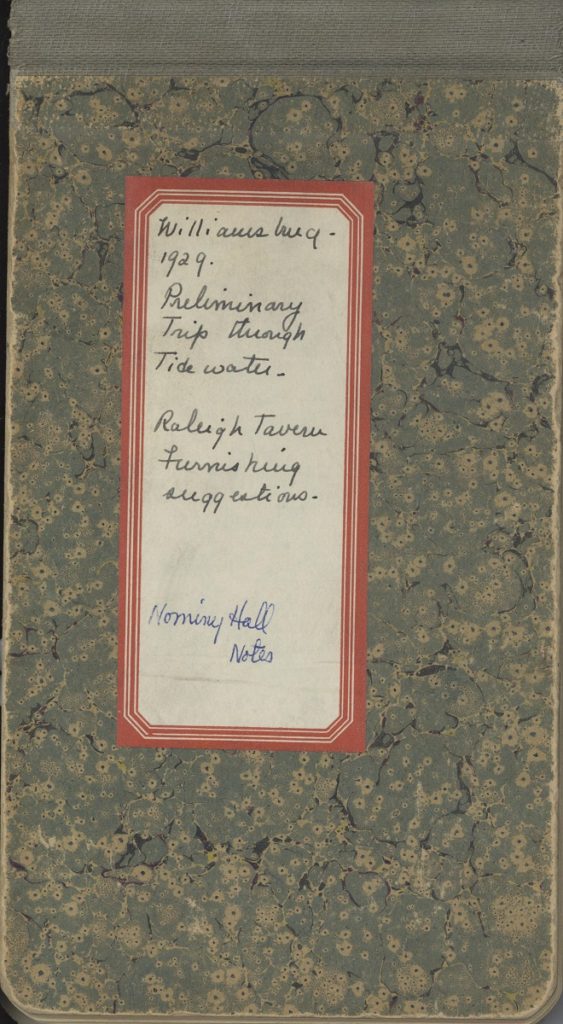 Williamsburg-
1929.
Preliminary
Trip through
Tide water-
Raleigh Tavern
Furnishing
suggestions-
Nominy Hall
Notes